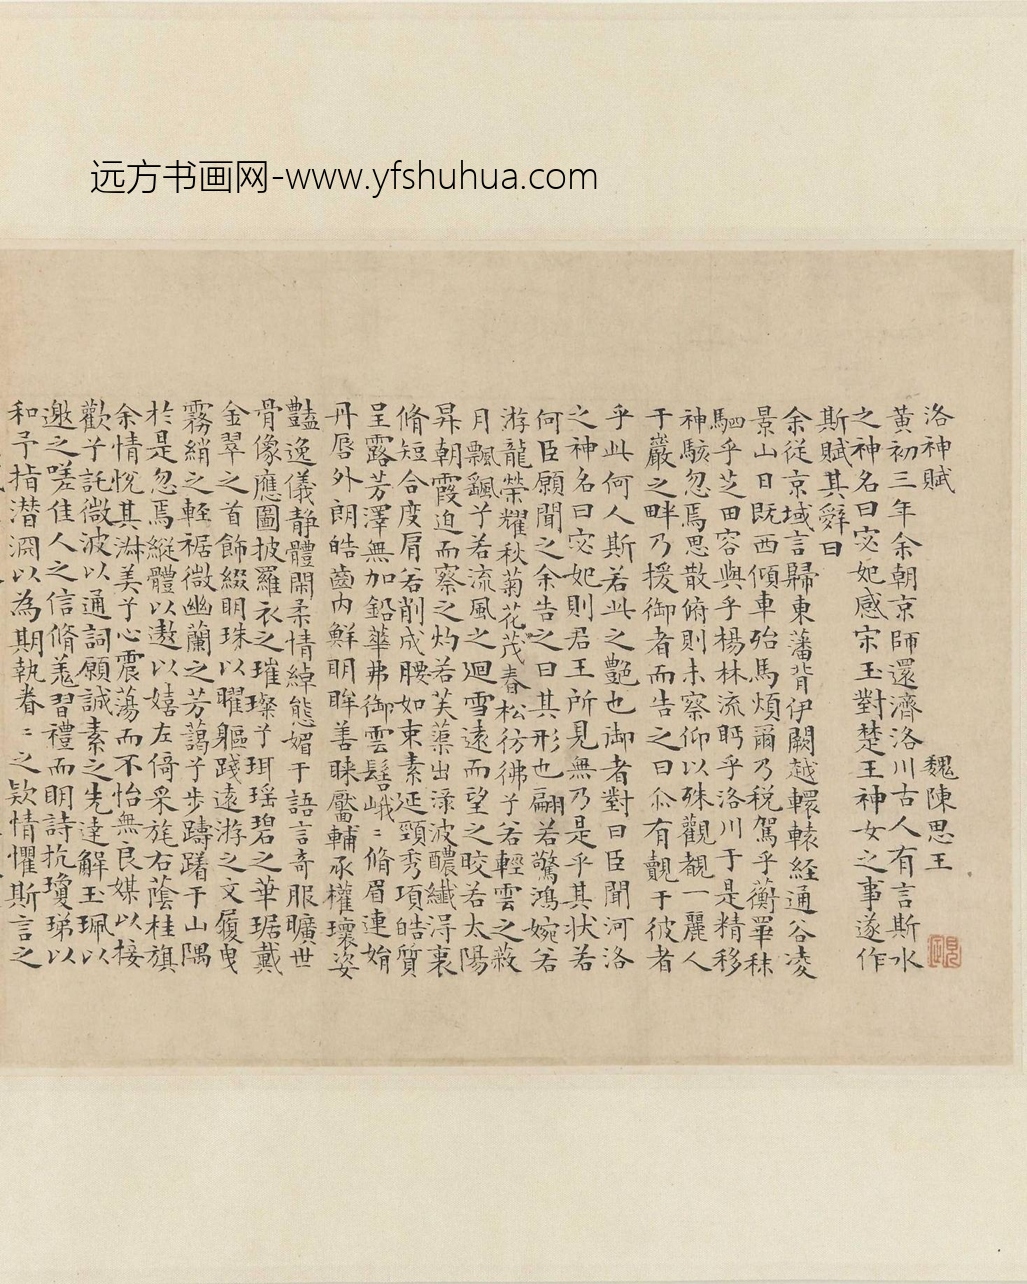 远方书画网-www.yfshuhua.com
洛神賦 魏陳思王
黃初三年余朝京師還濟洛川古人有言斯水
之神名曰宓妃感宋玉對楚王神女之事遂作
斯賦其辭曰
余從京域言歸東藩背伊闕越轘轅経通谷凌
景山日既西傾車殆馬煩爾乃税駕乎蘅皋秣
駟乎芝田容與乎楊林流眄乎洛川于是精移
神駭忽焉思散俯則未察仰以殊觀覩一麗人
于巖之畔乃援御者而告之曰尒有覿于彼者
乎此何人斯若此之艷也御者對曰臣聞河洛
之神名曰宓妃則君王所見無乃是乎其状若
何臣願聞之余告之曰其形也翩若驚鴻婉若
游龍榮耀秋菊花茂春松彷彿兮若輕雲之蔽
月飄飖兮若流風之迴雪遠而望之晈若太陽
昇朝霞迫而察之灼若芙蕖出渌波醲纖淂衷
脩短合度肩若削成腰如束素延頸秀項皓質
呈露芳澤無加鉛華弗御雲髻峨〻脩眉連娟
丹唇外朗皓齒内鮮明眸善睞靨輔承權瓌姿
豔逸儀静體閑柔情綽態媚于語言奇服曠世
骨像應圖披羅衣之璀璨兮珥瑶碧之華琚戴
金翠之首飾綴明珠以曜軀踐遠游之文履曳
霧綃之軽裾微幽蘭之芳藹兮步躊躇于山隅
於是忽焉縱體以遨以嬉左倚采旄右蔭桂旗
余情悅其淋美兮心震蕩而不怡無良媒以接
歡兮託微波以通詞願誠素之先達解玉珮以
邀之嗟佳人之信脩羗習禮而明詩抗瓊珶以
和予指潜淵以為期執眷〻之欵情懼斯言之